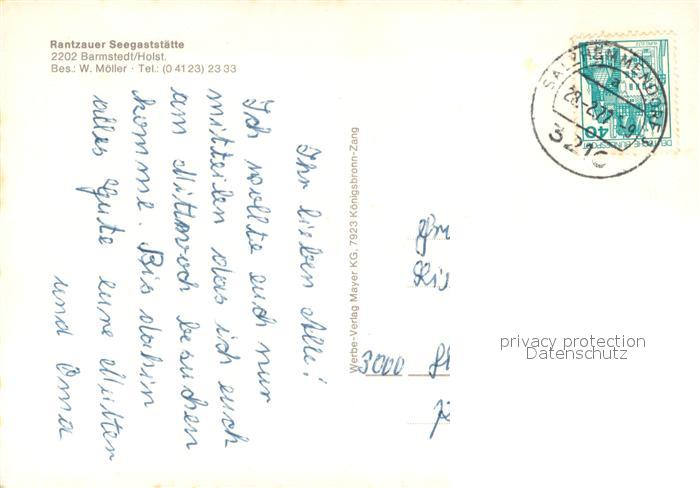 Rantzauer Seegaststätte
2202 Barmstedt/Holst.
Bes.: W. Möller · Tel.: (0 41 23) 23 33
Ihr lieben Alle!
Ich wollte euch nur
mitteilen das ich euch
am Mittwoch besuchen
komme. Bis dahin
alles Gute eure Mutter
und Oma
Werbe-Verlag Mayer KG, 7923 Königsbronn-Zang
3000
SALZHEMMENDORF
a
28.-2.77
321
40
DEUTSCHE BUNDESPOST
privacy protection
Datenschutz